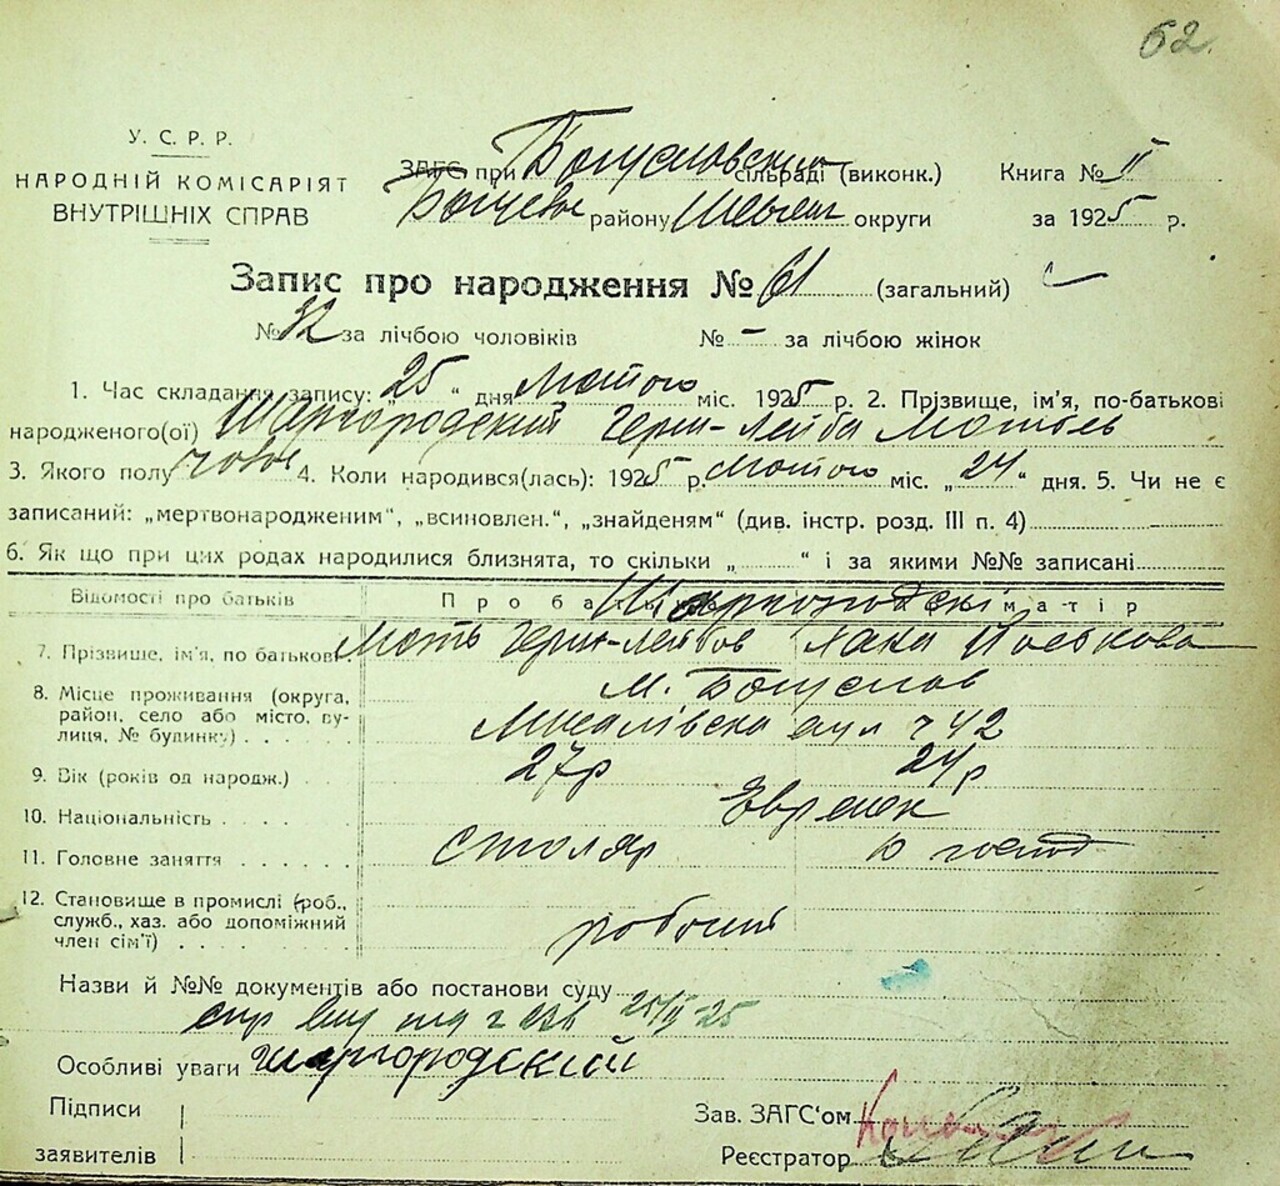 62.
У. С. Р. Р.
НАРОДНІЙ КОМІСАРІЯТ
ВНУТРІШНІХ СПРАВ
ЗАГС при Богуславський сільраді (виконк.) Книга № II
району округи за 1925 р.
Запис про народження № 61 (загальний)
№ 32 за лічбою чоловіків № – за лічбою жінок
1. Час складання запису: „25“ дня Лютого міс. 1925 р. 2. Прізвище, ім'я, по-батькові
народженого(ої) Шаргородский Герш-Лейба Мотьев
3. Якого полу чолов 4. Коли народився(лась): 1925 р. Лютого міс. „24“ дня. 5. Чи не є
записаний: „мертвонародженим“, „всиновлен.“, „знайденям“ (див. інстр. розд. III п. 4)
6. Як що при цих родах народилися близнята, то скільки „ “ і за якими №№ записані
Відомості про батьків Про батька Шаргородскі матір
7. Прізвище, ім'я, по батькові Моть Герш-Лейбов Йоськова
8. Місце проживання (округа, м. Богуслав
район, село або місто, ву-
лиця, № будинку) ч 42
9. Вік (років од народж.) 27р 24р
10. Національність Евреи
11. Головне заняття столяр
12. Становище в промислі (роб.,
служб., хаз. або допоміжний робочий
член сім'ї)
Назви й №№ документів або постанови суду
25/II-25
Особливі уваги Шаргородский
Підписи Зав. ЗАГС'ом
заявителів Реєстратор